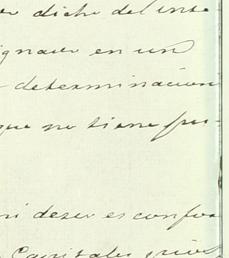 dicho del inte
ignase en un
determinacion
que no tiene fun-
mi deseo es confor
Capitales